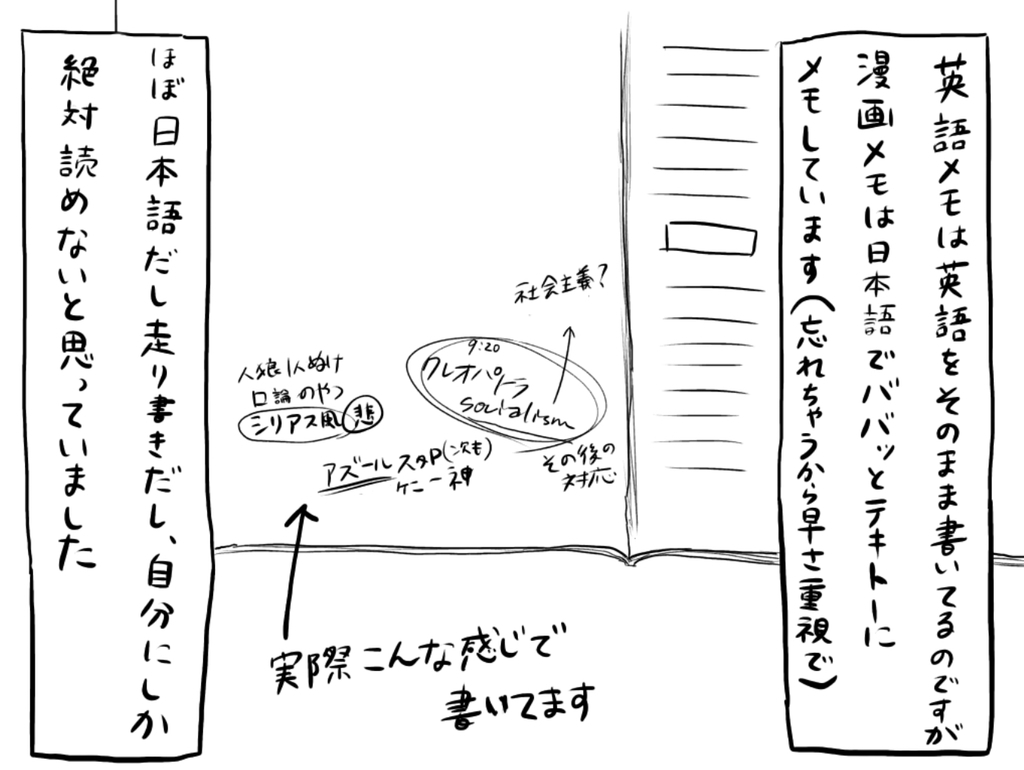 英語メモは英語をそのまま書いてるのですが
漫画メモは日本語でババッとテキトーに
メモしています(忘れちゃうから早さ重視で)
社会主義?
9:20
クレオパトラ
socialism
その後の
対応
人狼1人ぬけ
口論のやつ
シリアス風 悲
アズール スタP(次も)
ケニー神
実際こんな感じで
書いてます
ほぼ日本語だし走り書きだし、自分にしか
絶対読めないと思っていました